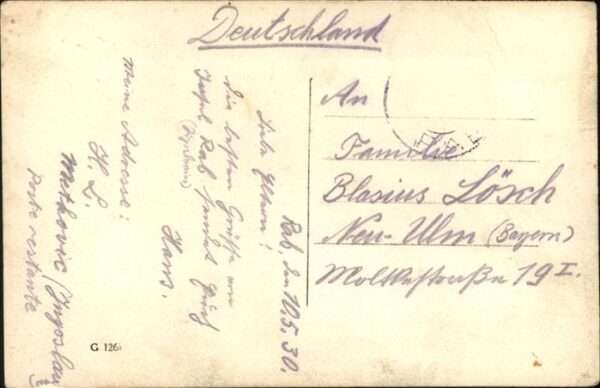 Deutschland
An
Familie
Blasius Lösch
Neu-Ulm (Bayern)
Moltkestraße 19 I.
Rab, den 10.5.30.
Liebe Eltern!
Die besten Grüße von
Insel Rab sendet Euch
Hans.
Meine Adresse:
H. L.
Metkovic (Jugoslav
poste restante
G 126